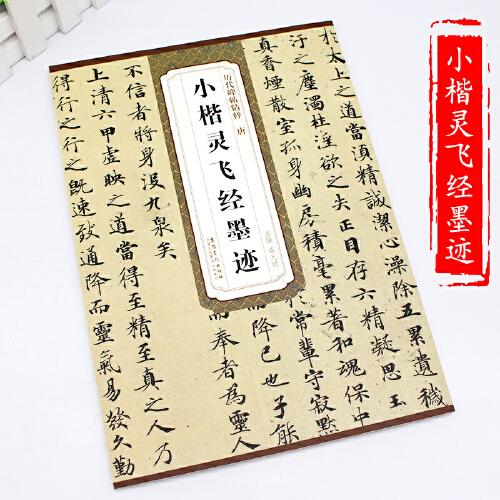 小楷灵飞经墨迹
历代碑帖精粹 唐
小楷灵飞经墨迹
於太上之道當須精誠潔心澡除五累遺穢
汙之塵濁杜淫欲之失正目存六精凝思玉
真香煙散室孤身幽房積毫累著和魂保中
於常輩守寂默
而降己也子能
而奉者為靈人
不信者將身没九泉矣
上清六甲虛映之道當得至精至真之人乃
得行之行之既速致通降而靈氣易發久勤